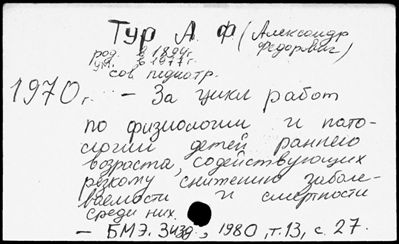 Тур А. Ф (Александр
Федорович)
род. в 1894г.
ум. в 1974г.
сов. педиатр.
1970г. – За цикл работ
по физиологии и пато-
логии детей раннего
возраста, содействующих
резкому снижению заболе-
ваемости и смертности
среди них.
– БМЭ. 3изд., 1980, т.13, с. 27.